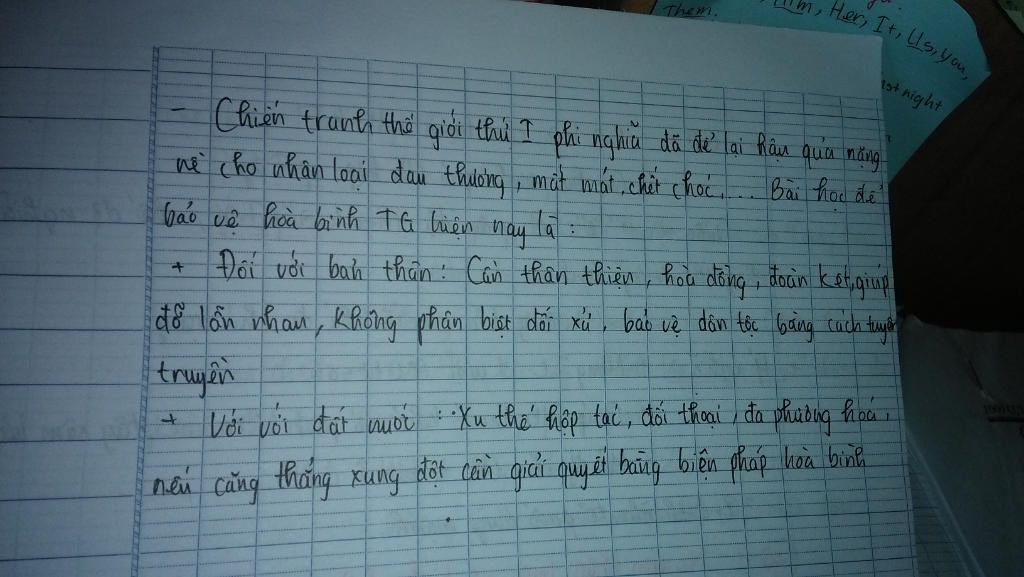 Them.
Him, Her, It, Us, you,
night
- Chiến tranh thế giới thứ I phi nghĩa đã để lại hậu quả nặng
nề cho nhân loại đau thương, mất mát, chết chóc,... Bài học để
bảo vệ hoà bình TG hiện nay là :
+ Đối với bản thân : Cần thân thiện, hòa đồng, đoàn kết, giúp
đỡ lẫn nhau, không phân biệt đối xử, bảo vệ dân tộc bằng cách tuyên
truyền
+ Với với đất nước : Xu thế hợp tác, đối thoại, đa phương hoá,
nếu căng thẳng xung đột cần giải quyết bằng biện pháp hòa bình